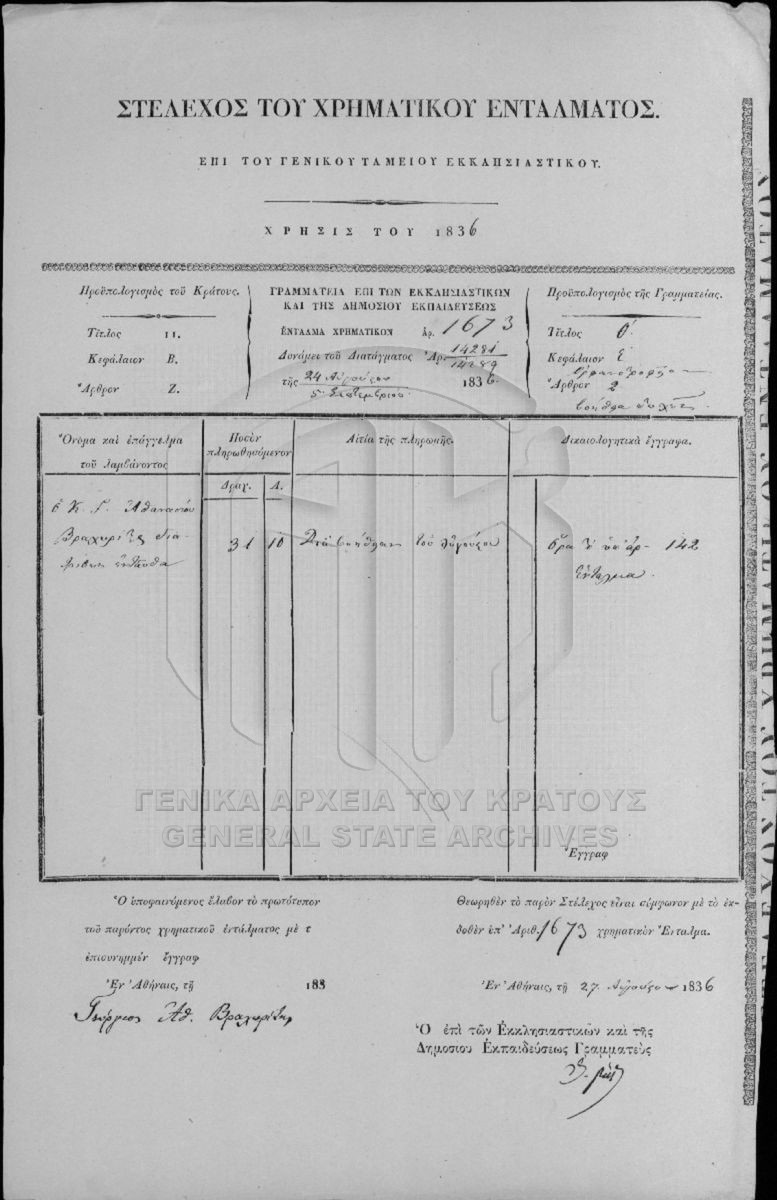 ΣΤΕΛΕΧΟΣ ΤΟΥ ΧΡΗΜΑΤΙΚΟΥ ΕΝΤΑΛΜΑΤΟΣ.
ΕΠΙ ΤΟΥ ΓΕΝΙΚΟΥ ΤΑΜΕΙΟΥ ΕΚΚΛΗΣΙΑΣΤΙΚΟΥ.
ΧΡΗΣΙΣ ΤΟΥ 1836
Προϋπολογισμὸς τοῦ Κράτους.
Τίτλος 11.
Κεφάλαιον Β.
Ἄρθρον Ζ.
ΓΡΑΜΜΑΤΕΙΑ ΕΠΙ ΤΩΝ ΕΚΚΛΗΣΙΑΣΤΙΚΩΝ
ΚΑΙ ΤΗΣ ΔΗΜΟΣΙΟΥ ΕΚΠΑΙΔΕΥΣΕΩΣ
ΕΝΤΑΛΜΑ ΧΡΗΜΑΤΙΚΟΝ Ἀρ. 1673
Δυνάμει τοῦ Διατάγματος Ἀρ. 14281
14289
τῆς 24 Αὐγούστου 1836.
5 Σεπτεμβρίου
Προϋπολογισμὸς τῆς Γραμματείας.
Τίτλος Θ.
Κεφάλαιον Ε
Ἄρθρον 2
Ὄνομα καὶ ἐπάγγελμα
τοῦ λαμβάνοντος
Ποσὸν
πληρωθησόμενον
Δραχ. Λ.
Αἰτία τῆς πληρωμῆς.
Δικαιολογητικὰ ἔγγραφα.
ὁ Κ. Γ. Ἀθανασίου
Βραχωρίτης δια-
31 10
142
ἔνταλμα.
Ἔγγραφ
Ὁ ὑποφαινόμενος ἔλαβον τὸ πρωτότυπον
τοῦ παρόντος χρηματικοῦ ἐντάλματος μὲ τ
ἐπισυνημμέν ἔγγραφ
Ἐν Ἀθήναις, τῇ 183
Γεώργιος Αθ. Βραχωρίτης
Θεωρηθὲν τὸ παρὸν Στέλεχος εἶναι σύμφωνον μὲ τὸ ἐκ-
δοθὲν ὑπ' Ἀριθ. 1673 χρηματικὸν Ἔνταλμα.
Ἐν Ἀθήναις, τῇ 27 Αὐγούστου 1836
Ὁ ἐπὶ τῶν Ἐκκλησιαστικῶν καὶ τῆς
Δημοσίου Ἐκπαιδεύσεως Γραμματεὺς
ΓΕΝΙΚΑ ΑΡΧΕΙΑ ΤΟΥ ΚΡΑΤΟΥΣ
GENERAL STATE ARCHIVES